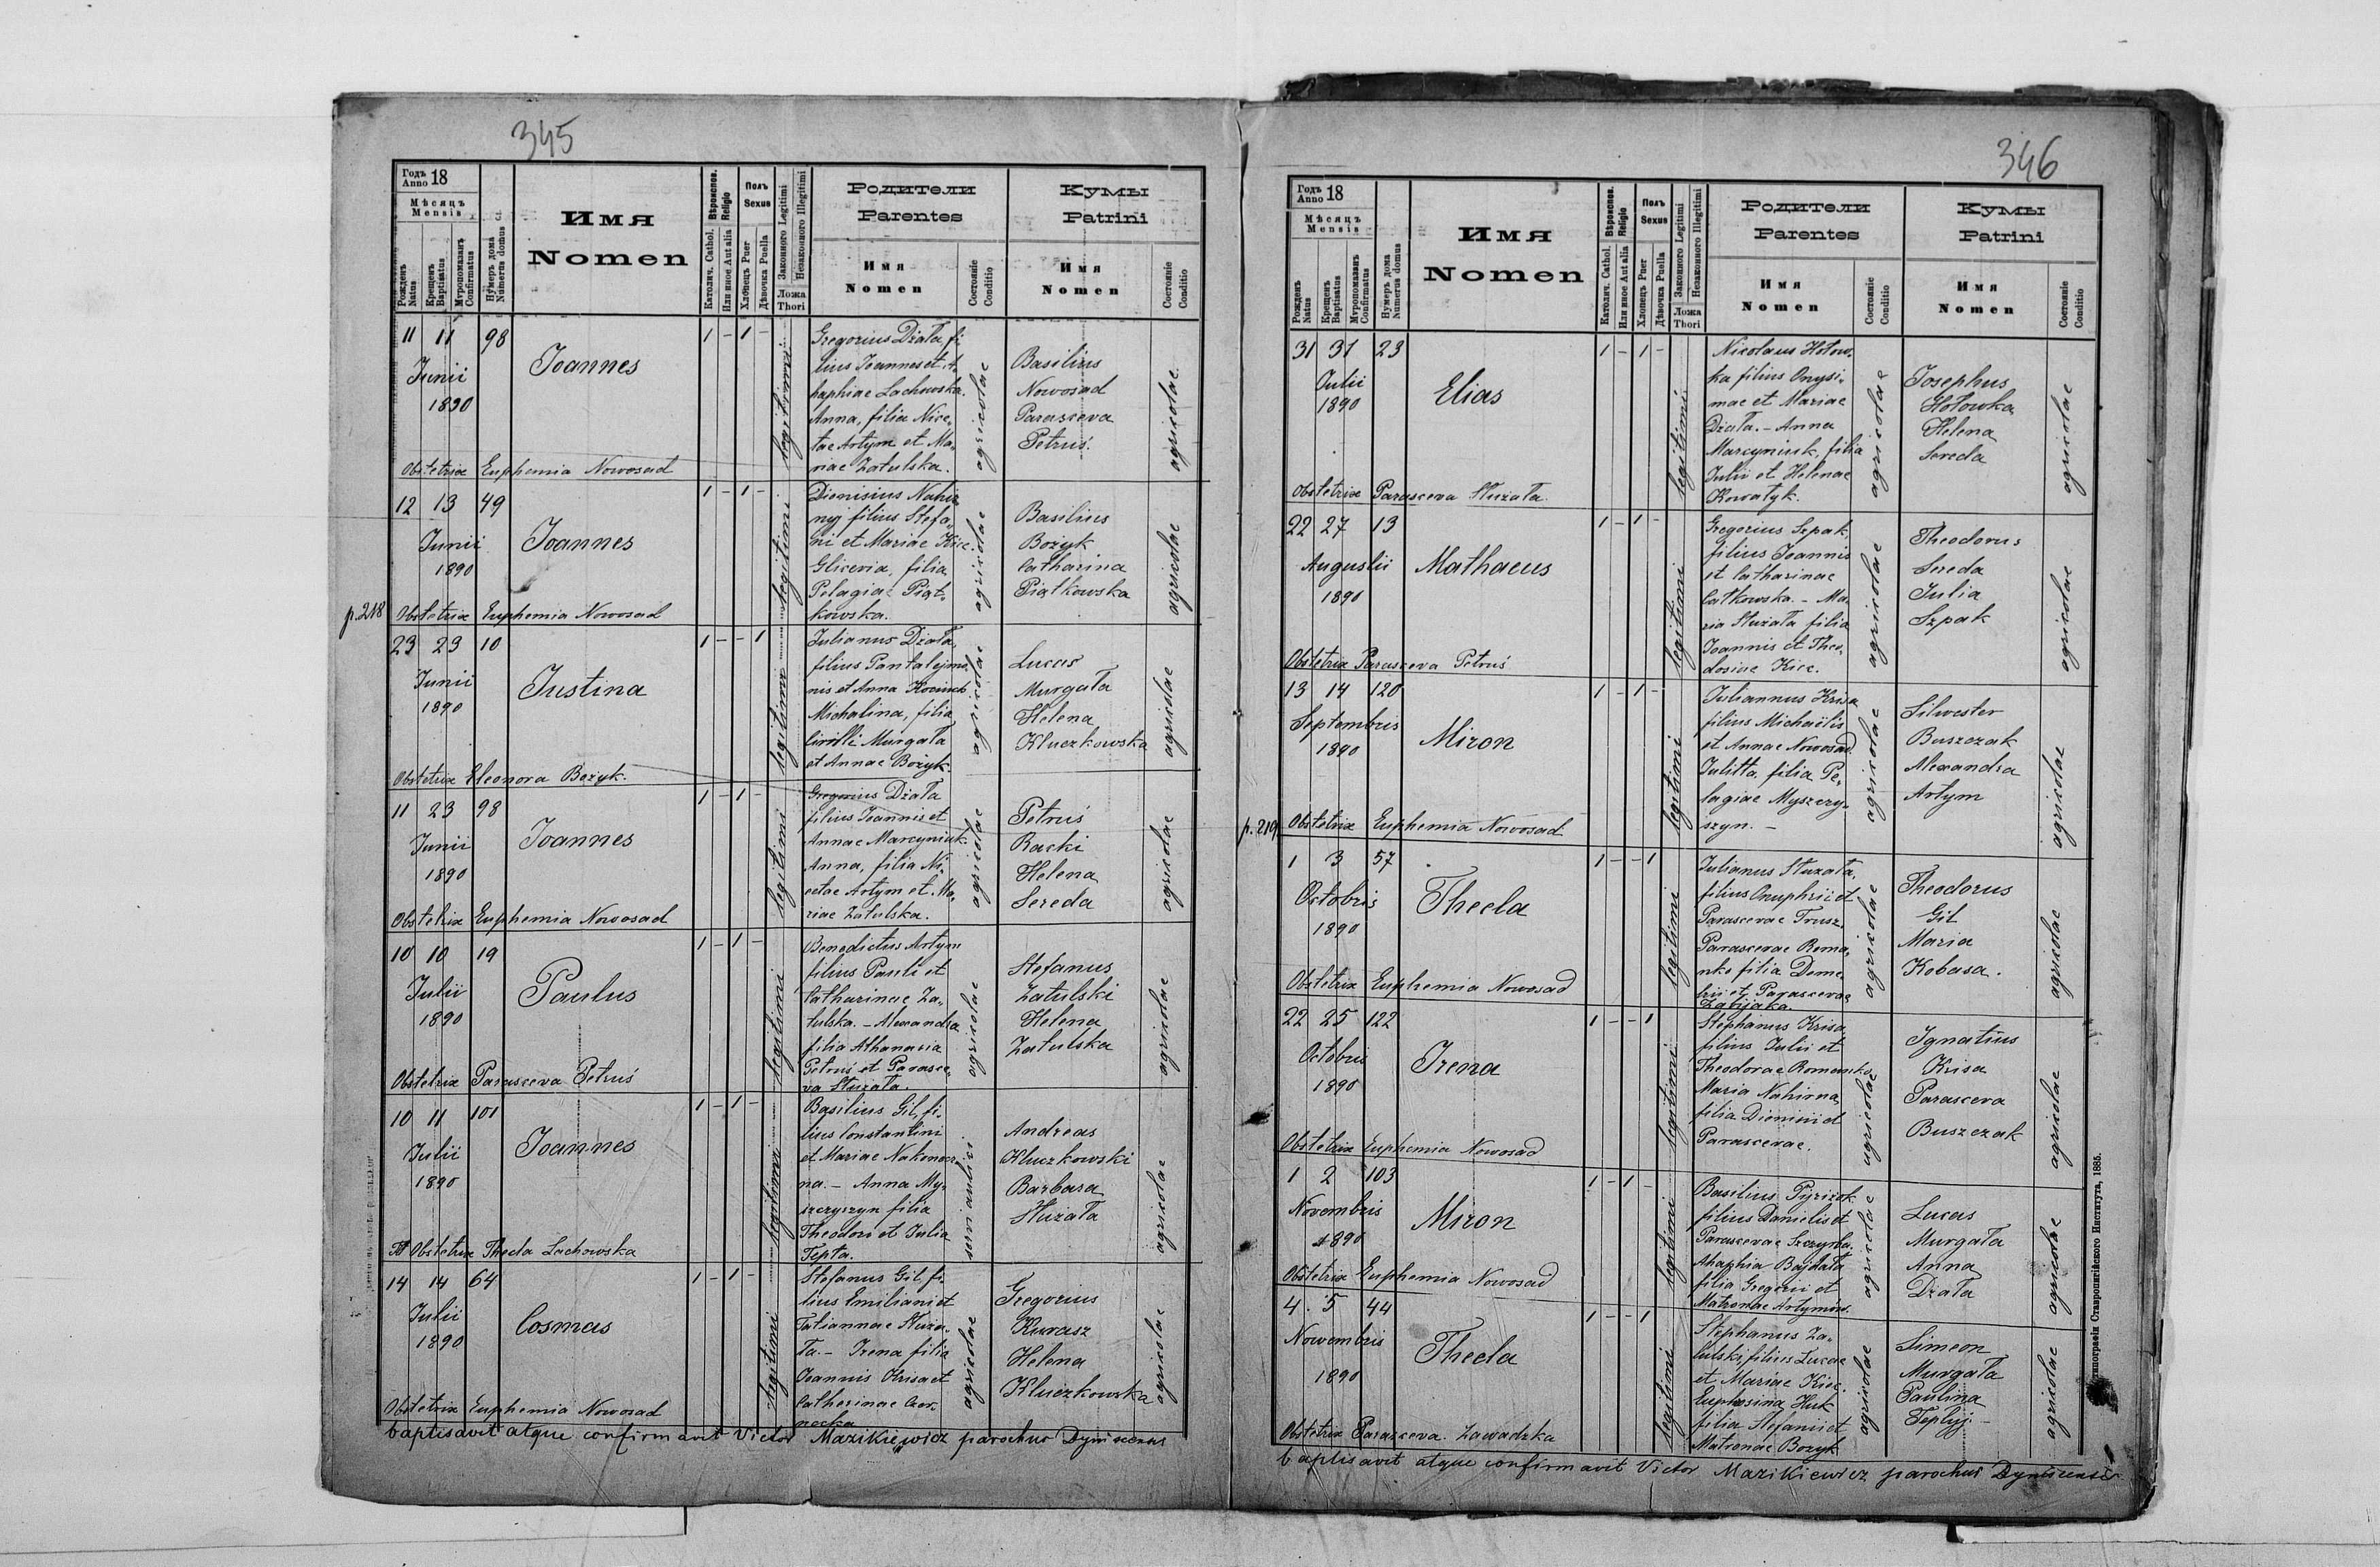 345
Годъ Anno 18
Мѣсяцъ
Mensis
Рожденъ Natus
Крещенъ Baptisatus
Мѵропомазанъ Confirmatus
Нумеръ дома Numerus domus
Имя
Nomen
Вѣроиспов. Religio
Католич. Cathol.
Или иное Aut alia
Полъ
Sexus
Хлопецъ Puer
Дѣвочка Puella
Законного Legitimi
Незаконного Illegitimi
Ложа
Thori
Родители
Parentes
Имя
Nomen
Состояніе Conditio
Кумы
Patrini
Имя
Nomen
Состояніе Conditio
11 11 98
Junii
1890
Joannes
1 - 1 -
legitimi
Gregorius Dżała, fi
lius Joannes et A
haphiae Lachowska.
Anna, filia Nice-
tae Artym et Ma-
riae Zatulska.
agricolae
Basilius
Nowosad
Parasceva
Petruś.
agricolae
Obstetrix Euphemia Nowosad
12 13 49
Junii
1890
Joannes
1 - 1 -
legitimi
Dionisius Nahir
nyj filius Stefa-
ni et Mariae Kicc.
Gliceria, filia
Pelagiae Piąt-
kowska.
agricolae
Basilius
Bożyk
Catharina
Piątkowska
agricolae
p. 218
Obstetrix Euphemia Nowosad
23 23 10
Junii
1890
Justina
1 - - 1
legitimi
Julianus Dżała,
filius Pantalejmo
nis et Anna
Michalina, filia
Cirilli Murgała
et Annae Bożyk.
agricolae
Lucas
Murgała
Helena
Kluczkowska
agricolae
Obstetrix Eleonora Bożyk.
11 23 98
Junii
1890
Joannes
1 - 1 -
legitimi
Gregorius Dżała
filius Joannis et
Annae Marcyniuk.
Anna, filia Ni-
cetae Artym et Ma-
riae Zatulska.
agricolae
Petruś
Racki
Helena
Sereda
agricolae
Obstetrix Euphemia Nowosad
10 10 19
Julii
1890
Paulus
1 - 1 -
legitimi
Benedictus Artym
filius Pauli et
Catharinae Za-
tulska. - Alexandra
filia Athanasia
Petruś et Parasce-
va Służała.
agricolae
Stefanus
Zatulski
Helena
Zatulska
agricolae
Obstetrix Parasceva Petruś
10 11 101
Julii
1890
Joannes
1 - 1 -
legitimi
Basilius Gil, fi-
lius Constantini
et Mariae Nakonecz
na. - Anna My-
szczyszyn filia
Theodori et Julia
Tepta.
servi aulici
Andreas
Kluczkowski
Barbara
Służała
agricolae
Obstetrix Thecla Lachowska
14 14 64
Julii
1890
Cosmas
1 - 1 -
legitimi
Stefanus Gil, fi-
lius Emiliani et
Tatiannae Służa-
ła. - Irena filia
Joannis Krisa et
Catherinae Czer-
necka
agricolae
Gregorius
Kurasz
Helena
Kluczkowska
agricolae
Obstetrix Euphemia Nowosad
baptisavit atque confirmavit Victor Mazikiewicz parochus Dyniscensis
346
Годъ Anno 18
Мѣсяцъ
Mensis
Рожденъ Natus
Крещенъ Baptisatus
Мѵропомазанъ Confirmatus
Нумеръ дома Numerus domus
Имя
Nomen
Вѣроиспов. Religio
Католич. Cathol.
Или иное Aut alia
Полъ
Sexus
Хлопецъ Puer
Дѣвочка Puella
Законного Legitimi
Незаконного Illegitimi
Ложа
Thori
Родители
Parentes
Имя
Nomen
Состояніе Conditio
Кумы
Patrini
Имя
Nomen
Состояніе Conditio
31 31 23
Julii
1890
Elias
1 - 1 -
legitimi
Nicolaus Hołow-
ka filius Onysi-
mae et Mariae
Dżała. - Anna
Marcyniuk, filia
Julii et Helenae
Kowałyk.
agricolae
Josephus
Hołowka
Helena
Sereda
agricolae
Obstetrix Parasceva Służała.
22 27 13
Augustii
1890
Mathaeus
1 - 1 -
legitimi
Gregorius Szpak,
filius Joannis
et Catharinae
Catkowska. - Ma
ria Służała filia
Joannis et Theo-
dosiae Kicc.
agricolae
Theodorus
Sereda
Julia
Szpak
agricolae
Obstetrix Parasceva Petruś
13 14 120
Septembris
1890
Miron
1 - 1 -
legitimi
Juliannus Krisa
filius Michaëlis
et Annae Nowosad.
Julitta, filia Pe-
lagiae Myszczy-
szyn. -
agricolae
Silvester
Buszczak
Alexandra
Artym
agricolae
p. 219
Obstetrix Euphemia Nowosad
1 3 57
Octobris
1890
Thecla
1 - - 1
legitimi
Julianus Służała,
filius Onuphrii et
Parascevae Trusz.
Parascevae Roma-
nko filia Deme-
trii et Parascevae
Zabijaka.
agricolae
Theodorus
Gil
Maria
Kobasa.
agricolae
Obstetrix Euphemia Nowosad
22 25 122
Octobris
1890
Irena
1 - - 1
legitimi
Stephanus Krisa
filius Julii et
Theodorae Romanko
Maria Nahirna,
filia Dionisii et
Parascevae.
agricolae
Ignatius
Krisa
Parasceva
Buszczak
agricolae
Obstetrix Euphemia Nowosad
1 2 103
Novembris
1890
Miron
1 - 1 -
legitimi
Basilius Pyrizok
filius Danielis et
Parascevae Szczyrba.
Ahaphia Bajdała
filia Gregorii et
Matronae Artymow.
agricolae
Lucas
Murgała
Anna
Dżała
agricolae
Obstetrix Euphemia Nowosad
4. 5 44
Nowembris
1890
Thecla
1 - - 1
legitimi
Stephanus Za-
tulski, filius Lucae
et Mariae Kicc.
Euphrosina Huk
filia Stefanii et
Matronae Bozyk
agricolae
Simeon
Murgała
Paulina
Tepłyj -
agricolae
Obstetrix Parasceva. Zawadzka
baptisavit atque confirmavit Victor Mazikiewicz parochus Dyniscensis
типографіи Ставропигійского Института, 1885.